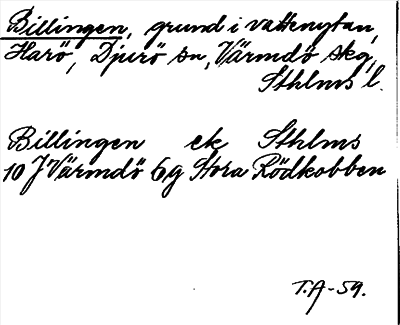 Billingen, grund i vattenytan,
Harö, Djurö sn, Värmdö skg,
Sthlms l.
Billingen ek Sthlms
10 J Värmdö 6g Stora Rödkobben
T.A-59.